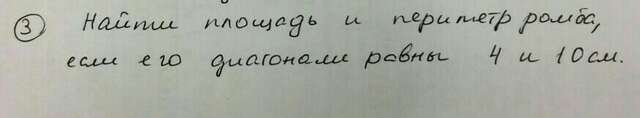 ③ Найти площадь и периметр ромба,
если его диагонали равны 4 и 10 см.